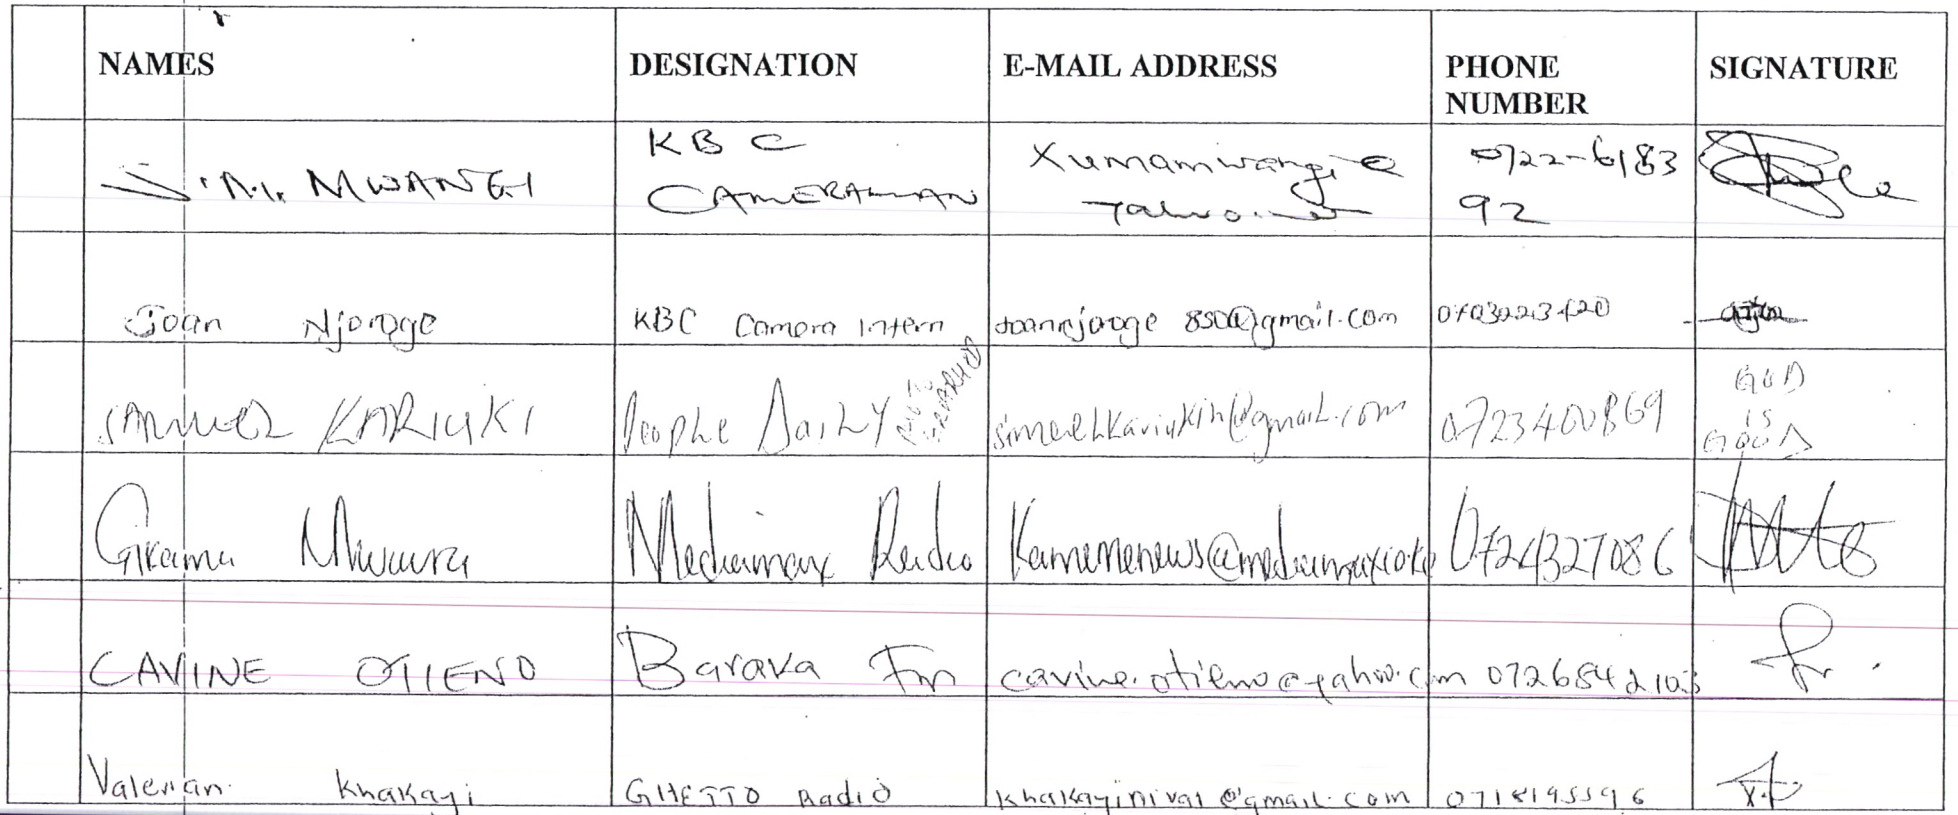 NAMES DESIGNATION E-MAIL ADDRESS PHONE NUMBER SIGNATURE
S.M. MWANGI KBC CAMERAMAN Xumamwangi@ 0722-6183
92
Joan Njoroge KBC Camera Intern joannjoroge 850@gmail.com
SAMUEL KARIUKI People Daily 0723400869 GOD
IS
GOOD
Gikamu Mwaura Mediamax Radio Kamemenews@mediamax.co.ke 0724327086
CAVINE OTIENO Baraka Fm cavine.otieno@yahoo.com 0726542103
Valerian Khakayi GHETTO Radio khakayinival@gmail.com 0718195596